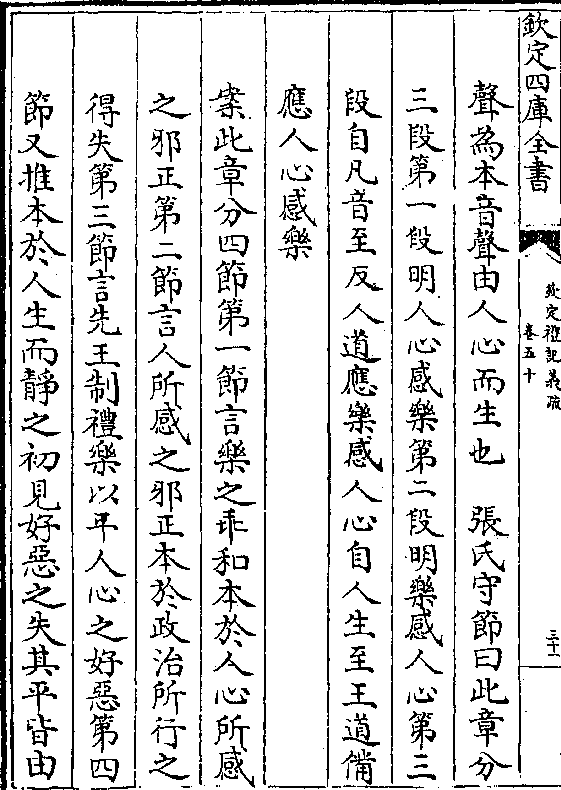 欽定四庫全書
欽定禮記義疏
卷五十
三十一
聲為本音聲由人心而生也　張氏守節曰此章分
三段第一段明人心感樂第二段明樂感人心第三
段自凡音至反人道應樂感人心自人生至王道備
應人心感樂
案此章分四節第一節言樂之乖和本於人心所感
之邪正第二節言人所感之邪正本於政治所行之
得失第三節言先王制禮樂以平人心之好惡第四
節又推本於人生而靜之初見好惡之失其平皆由